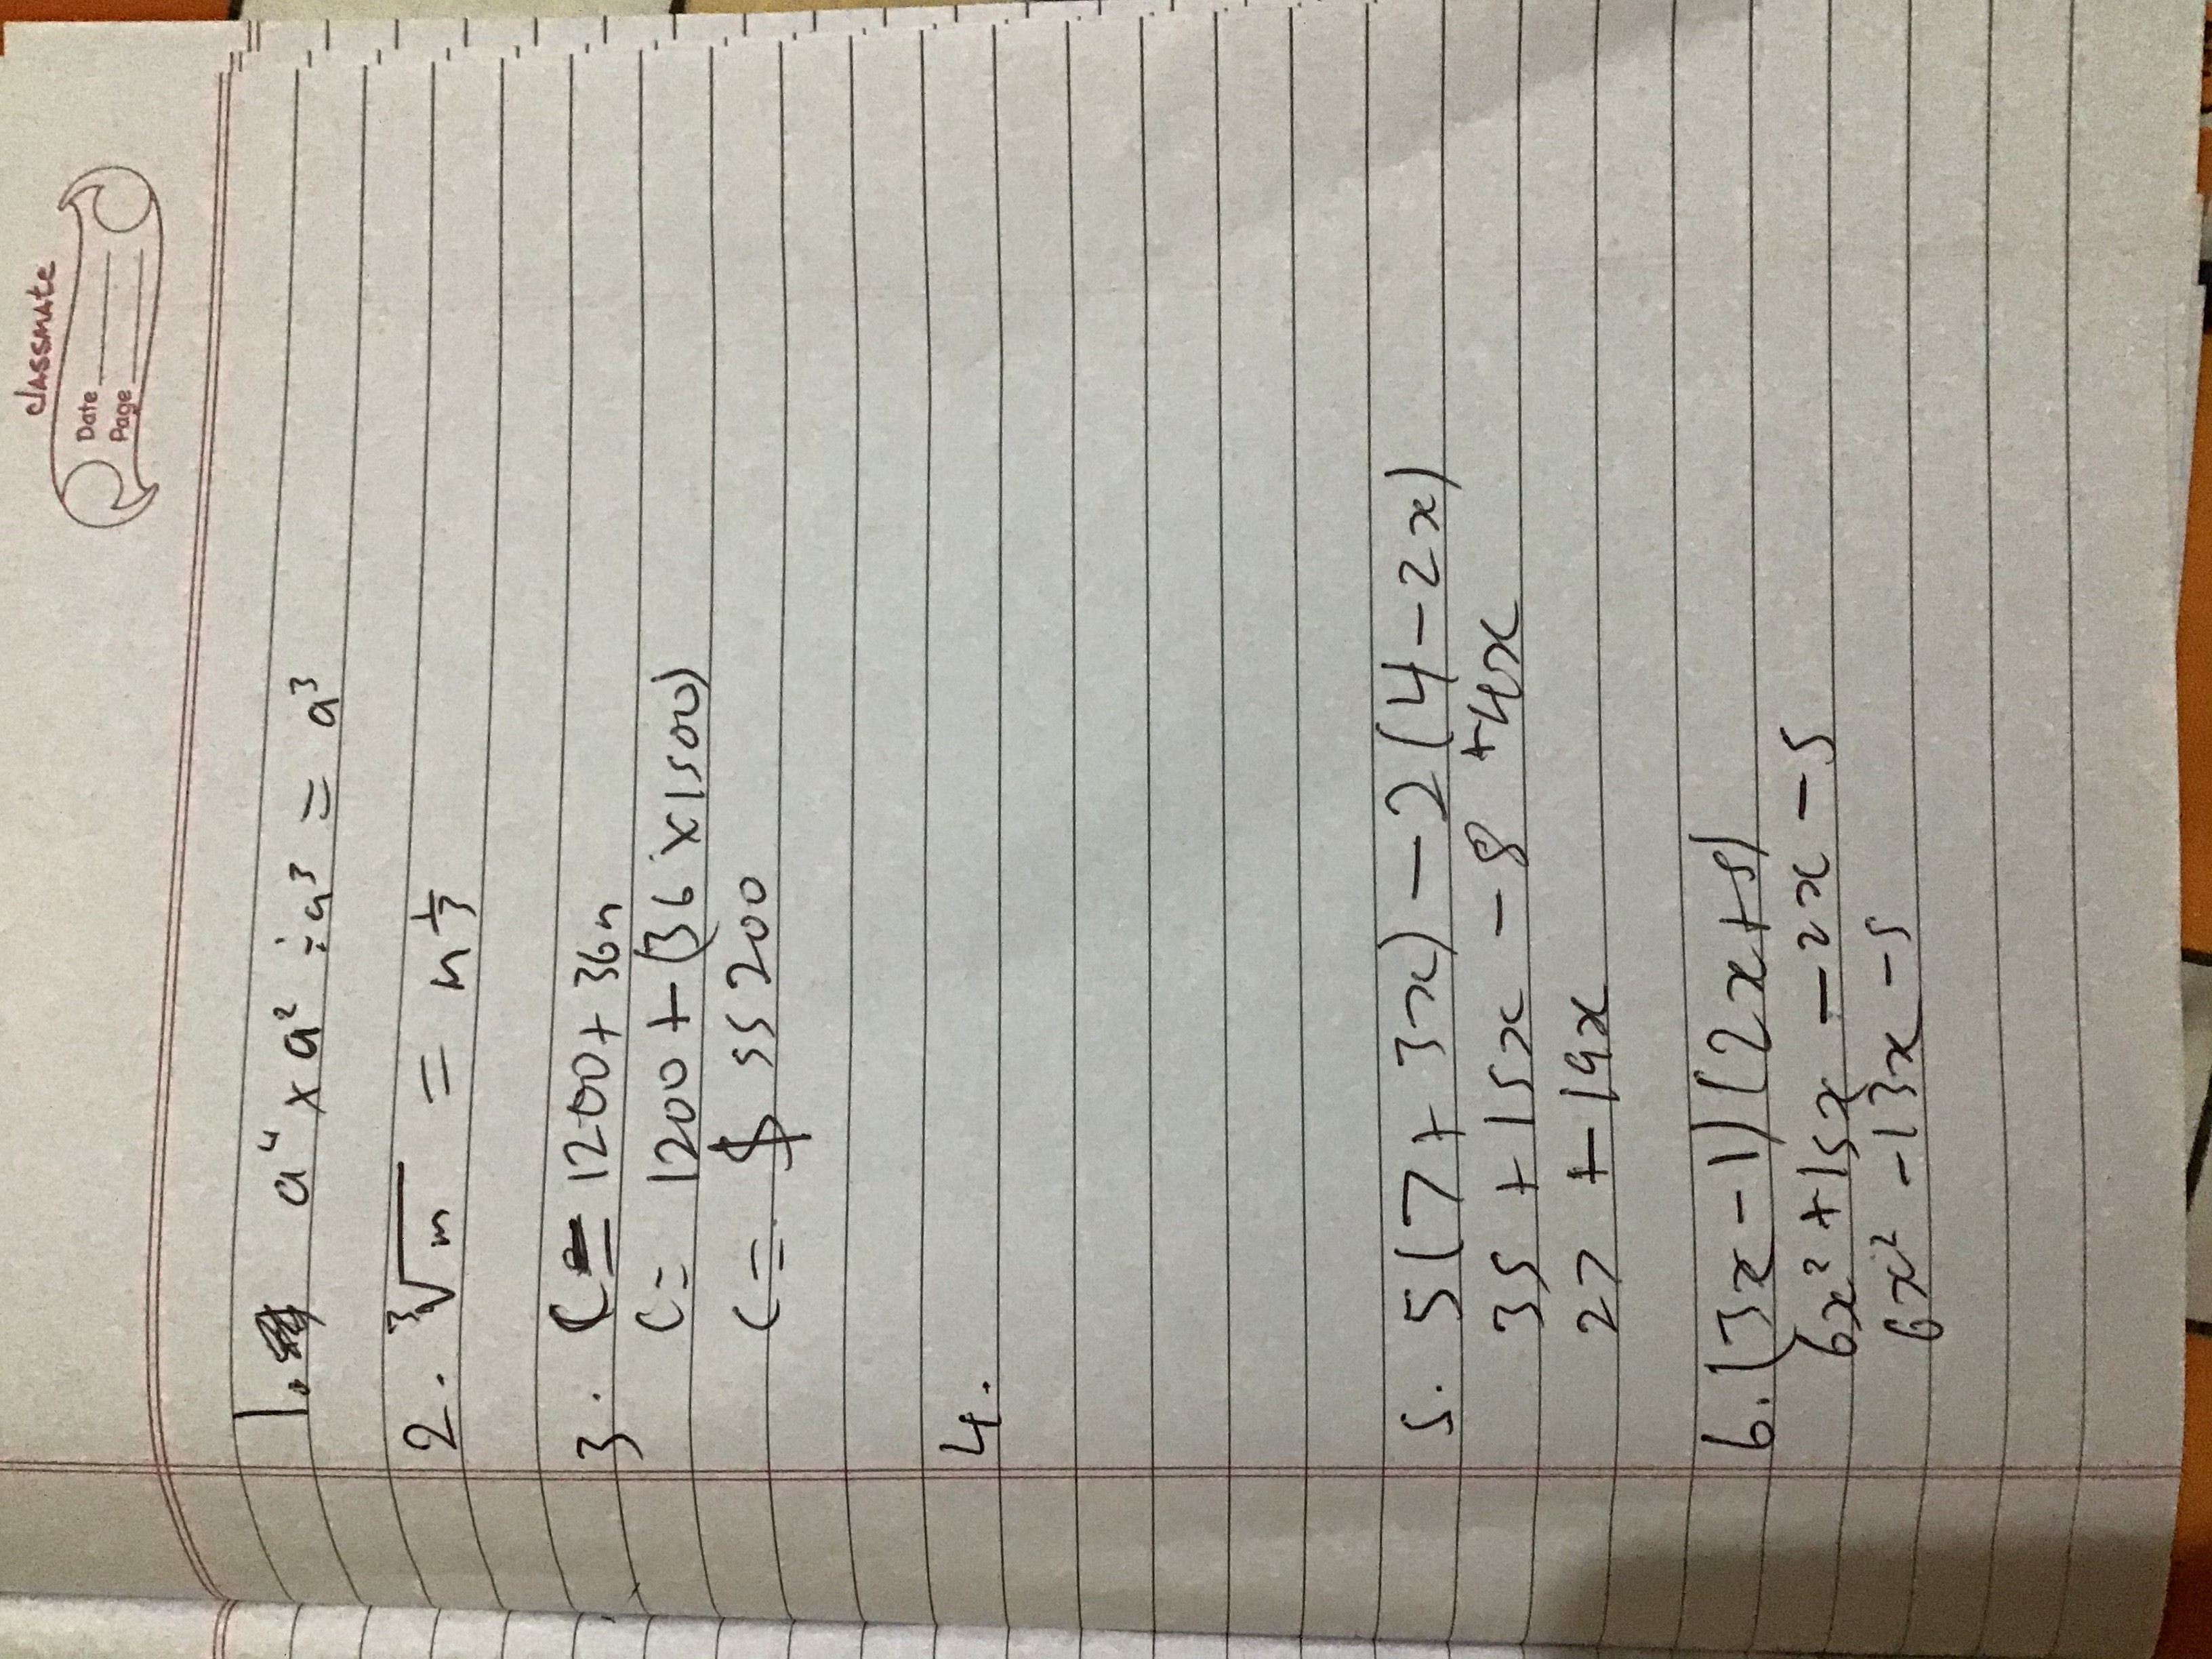 classmate
Date
Page
1. a⁴ × a² ÷ a³ = a³
2. ³√m = m^1/3
3. C = 1200 + 36n
C = 1200 + (36 × 1500)
C = $ 55200
4.
5. 5(7 + 3x) - 2(4 - 2x)
35 + 15x - 8 + 4x
27 + 19x
6. (3x - 1)(2x + 5)
6x² + 15x - 2x - 5
6x² - 13x - 5